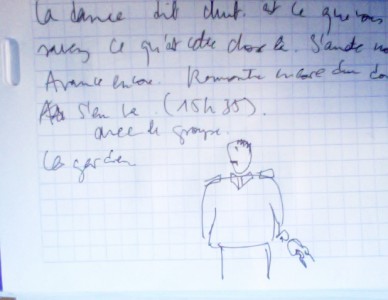 La dame dit chut. est ce que vous
savez ce qu'est cette chose la. S'ensuite
Avance encore. Remonte encore d'un
S'en va (15h35).
avec le groupe.
Le gardien